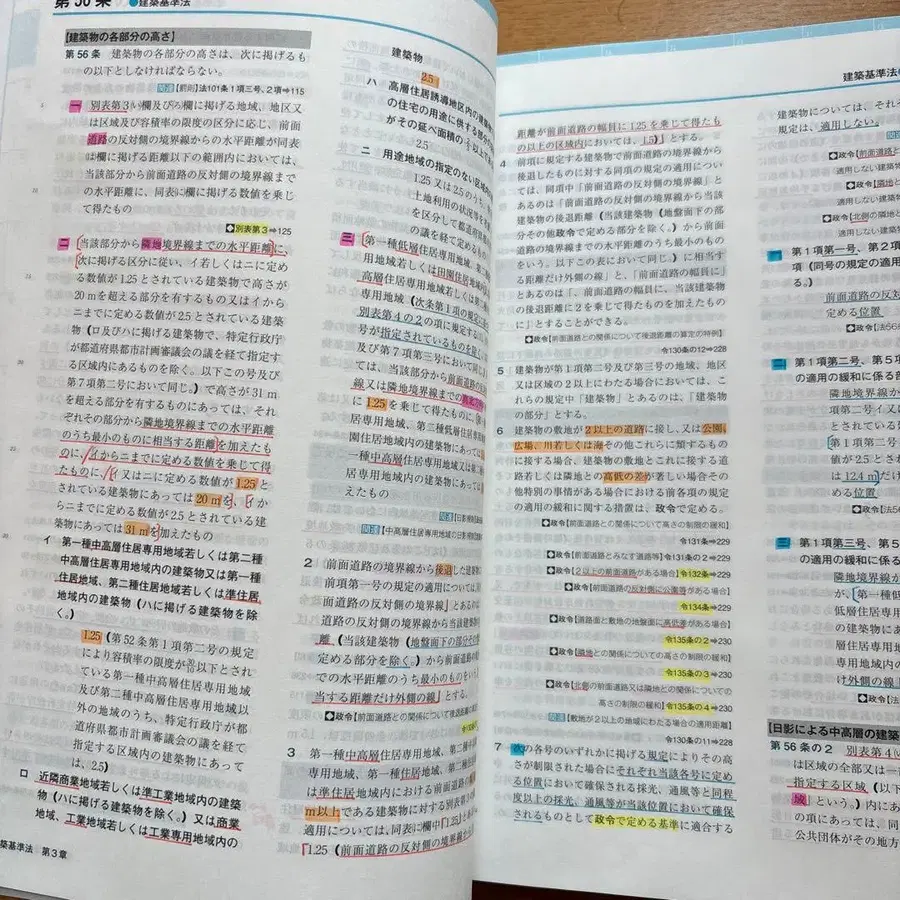 第56条 ●建築基準法
【建築物の各部分の高さ】
第56条 建築物の各部分の高さは、次に掲げるも
の以下としなければならない。
関連[罰則]法101条1項三号、2項⇒115
一 別表第3い欄及びろ欄に掲げる地域、地区又
は区域及び容積率の限度の区分に応じ、前面
道路の反対側の境界線からの水平距離が同表
は欄に掲げる距離以下の範囲内においては、
当該部分から前面道路の反対側の境界線まで
の水平距離に、同表に欄に掲げる数値を乗じ
て得たもの
別表第3⇒125
二 当該部分から隣地境界線までの水平距離に、
次に掲げる区分に従い、イ若しくはニに定め
る数値が1.25とされている建築物で高さが
20mを超える部分を有するもの又はイから
ニまでに定める数値が2.5とされている建築
物（ロ及びハに掲げる建築物で、特定行政庁
が都道府県都市計画審議会の議を経て指定す
る区域内にあるものを除く。以下この号及び
第7項第二号において同じ。）で高さが31m
を超える部分を有するものにあっては、それ
ぞれその部分から隣地境界線までの水平距離
のうち最小のものに相当する距離を加えたも
のに、イからニまでに定める数値を乗じて得
たものに、イ又はニに定める数値が1.25と
されている建築物にあっては20mを、イか
らニまでに定める数値が2.5とされている建
築物にあっては31mを加えたもの
イ 第一種中高層住居専用地域若しくは第二種
中高層住居専用地域内の建築物又は第一種
住居地域、第二種住居地域若しくは準住居
地域内の建築物（ハに掲げる建築物を除
く。）
1.25（第52条第1項第二号の規定
により容積率の限度が30/10以下とされ
ている第一種中高層住居専用地域
及び第二種中高層住居専用地域以
外の地域のうち、特定行政庁が都
道府県都市計画審議会の議を経て
指定する区域内の建築物にあって
は、2.5）
ロ 近隣商業地域若しくは準工業地域内の建築
物（ハに掲げる建築物を除く。）又は商業
地域、工業地域若しくは工業専用地域内の
築基準法 第3章
建築物
2.5
ハ 高層住居誘導地区内の建築物
の住宅の用途に供する部分の
がその延べ面積の
2.5
ニ 用途地域の指定のない区域内
1.25又は2.5のうち、
土地利用の状況等を
を区分して都道府
の議を経て定める
三 第一種低層住居専用地域、第二種
用地域若しくは田園住居地域
高層住居専用地域若しくは第
専用地域（次条第1項の規定
別表第4の2の項に規定する
号が指定されているものを除
及び第7項第三号において同じ
ては、当該部分から前面道路の
線又は隣地境界線までの
に1.25を乗じて得たものに、
居専用地域、第二種低層住居
園住居地域内の建築物にあっ
一種中高層住居専用地域又は第
居専用地域内の建築物にあっ
えたもの
関連[日影
関連[中高層住居専用地域の日影
2 前面道路の境界線から後退した建築
前項第一号の規定の適用については、
面道路の反対側の境界線」とあるのは
道路の反対側の境界線から当該建築物
離（当該建築物（地盤面下の部分その他
定める部分を除く。）から前面道
での水平距離のうち最小のものをいう
当する距離だけ外側の線」とする。
政令[前面道路との関係について後退距離の
3 第一種中高層住居専用地域、第二種中
専用地域、第一種住居地域、第二種
は準住居地域内における前面道路の
m以上である建築物に対する別表第3の
適用については、同表に欄中「1.25」とあ
「1.25（前面道路の反対側の境界線
建築基準法
距離が前面道路の幅員に1.25を乗じて得たも
の以上の区域内においては、1.5）」とする。
4 前項に規定する建築物で前面道路の境界線から
後退したものに対する同項の規定の適用につい
ては、同項中「前面道路の反対側の境界線」と
あるのは「前面道路の反対側の境界線から当該
建築物の後退距離（当該建築物（地盤面下の部
分その他政令で定める部分を除く。）から前面
道路の境界線までの水平距離のうち最小のもの
をいう。以下この表において同じ。）に相当す
る距離だけ外側の線」と、「前面道路の幅員に」
とあるのは「、前面道路の幅員に、当該建築物
の後退距離に2を乗じて得たものを加えたもの
に」とすることができる。
政令[前面道路との関係について後退距離の算定の特例]
令130条の12⇒228
5 建築物が第1項第二号及び第三号の地域、地区
又は区域の2以上にわたる場合においては、こ
れらの規定中「建築物」とあるのは、「建築物
の部分」とする。
6 建築物の敷地が2以上の道路に接し、又は公園、
広場、川若しくは海その他これらに類するもの
に接する場合、建築物の敷地とこれに接する道
路若しくは隣地との高低の差が著しい場合その
他特別の事情がある場合における前各項の規定
の適用の緩和に関する措置は、政令で定める。
政令[前面道路との関係についての高さの制限の緩和]
令131条⇒229
政令[前面道路とみなす道路等]令131条の2⇒229
政令[2以上の前面道路がある場合]令132条⇒229
政令[前面道路の反対側に公園等がある場合]
令134条⇒229
政令[道路面と敷地の地盤面に高低差がある場合]
令135条の2⇒230
政令[隣地との関係についての高さの制限の緩和]
令135条の3⇒230
政令[北側の前面道路又は隣地との関係についての
高さの制限の緩和]令135条の4⇒230
関連[敷地が2以上の地域にわたる場合の適用距離]
令130条の11⇒228
7 次の各号のいずれかに掲げる規定によりその高
さが制限された場合にそれぞれ当該各号に定め
る位置において確保される採光、通風等と同程
度以上の採光、通風等が当該位置において確保
されるものとして政令で定める基準に適合する
建築物については、それぞ
規定は、適用しない。
政令[前面道路と
適用しない建築物
政令[隣地と
適用しない建築
政令[北側の隣地と
適用しない建築
一 第1項第一号、第2項
項（同号の規定の適用
る。）
前面道路の反対
定める位置
政令[法56
二 第1項第二号、第5項
の適用の緩和に係る部
隣地境界線か
項第二号イ又
とされている
第1項第二号
は12.4mだけ
める位置
政令[法5
三 第1項第三号、第5項
の適用の緩和に係る
隣地境界線
が、第一種低
低層住居専用
の建築物にあ
居専用地域
の建築物にあ
け外側の線
政令[法
【日影による中高層の建築
第56条の2 別表第4
は区域の全部又は一
指定する区域（以下
域」という。）内にあ
の項にあっては、同
公共団体がその地方